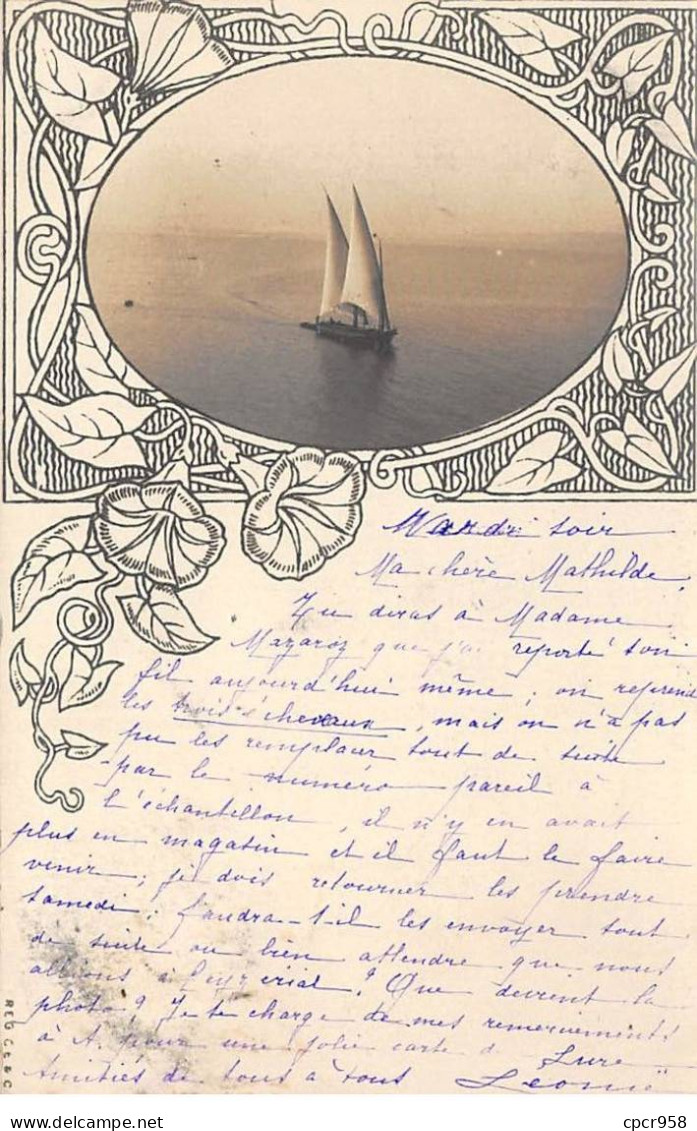 Mardi soir
Ma chère Mathilde,
Tu diras à Madame
Mazaroz que j'ai reporté son
fil aujourd'hui même ; on reprend
les trois écheveaux, mais on n'a pas
pu les remplacer tout de suite
par le numéro pareil à
l'échantillon, il n'y en avait
plus en magasin et il faut le faire
venir ; je dois retourner les prendre
samedi. faudra-t-il les envoyer tout
de suite ou bien attendre que nous
allions à ? Que devient la
photo ? Je te charge de mes remerciements
à A. pour une jolie carte de Lure
Amitiés de tous à tous Léonie
REG C.t & C
cpcr958
delcampe.net